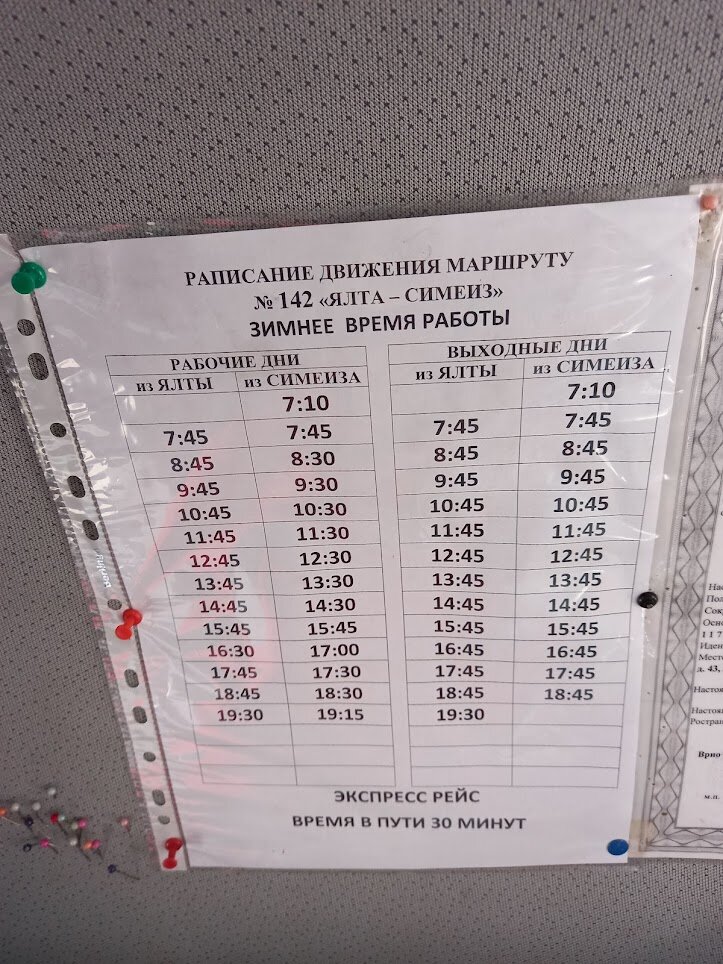 РАПИСАНИЕ ДВИЖЕНИЯ МАРШРУТУ
№ 142 «ЯЛТА – СИМЕИЗ»
ЗИМНЕЕ ВРЕМЯ РАБОТЫ
РАБОЧИЕ ДНИ ВЫХОДНЫЕ ДНИ
из ЯЛТЫ из СИМЕИЗА из ЯЛТЫ из СИМЕИЗА
7:10 7:10
7:45 7:45 7:45 7:45
8:45 8:30 8:45 8:45
9:45 9:30 9:45 9:45
10:45 10:30 10:45 10:45
11:45 11:30 11:45 11:45
12:45 12:30 12:45 12:45
13:45 13:30 13:45 13:45
14:45 14:30 14:45 14:45
15:45 15:45 15:45 15:45
16:30 17:00 16:45 16:45
17:45 17:30 17:45 17:45
18:45 18:30 18:45 18:45
19:30 19:15 19:30
ЭКСПРЕСС РЕЙС
ВРЕМЯ В ПУТИ 30 МИНУТ
1 1 7
д. 43,
Врио
м.п.